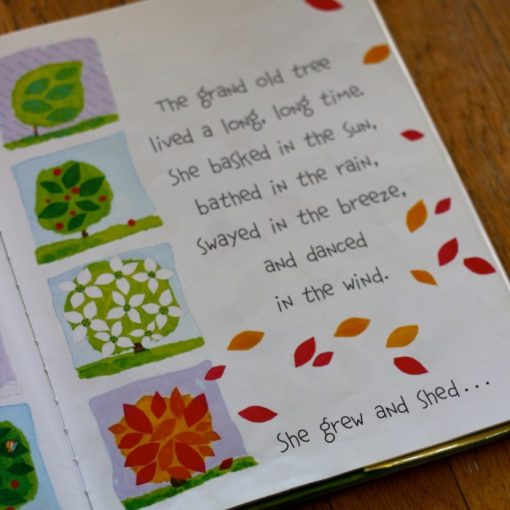 The grand old tree
lived a long, long time.
She basked in the sun,
bathed in the rain,
swayed in the breeze,
and danced
in the wind.
She grew and shed...